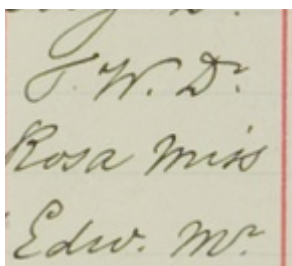 J. W. Dr.
Rosa Miss
Edw. Mr.